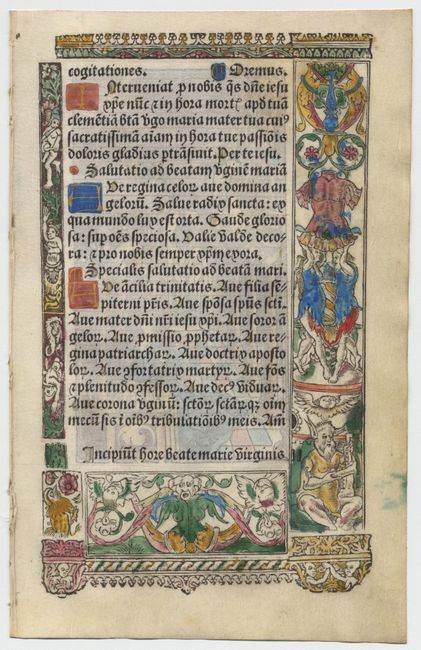 cogitationes. Oremus.
INterveniat ꝓ nobis q̄s dn̄e iesu
xp̄e nūc ⁊ in hora mortꝭ apd tuā
clemētiā bt̄a v̓go maria mater tua cui⁹
sacratissimā aīam in hora tue passiōis
doloris gladius ꝑtrāsivit. Per te iesu.
Salutatio ad beatam v̓ginē mariā
AVe regina celoꝝ ave domina an
geloruꝫ. Salve radix sancta: ex
qua mundo lux est orta. Gaude glorio
sa: sup oēs speciosa. Valie valde deco
ra: ⁊ pro nobis semper xp̄m exora.
Specialis salutatio ad beatā mari.
AVe ācilla trinitatis. Ave filia sē
piterni pr̄is. Ave spōsa spūs scti.
Ave mater dn̄i nr̄i iesu xp̄i. Ave soror ā
geloꝝ. Ave ꝓmissio ꝓphetaꝝ. Ave re
gina patriarchaꝝ. Ave doctrix aposto
loꝝ. Ave ꝯfortatrix martyꝝ. Ave fōs
⁊ plenitudo ꝯfessoꝝ. Ave dec⁹ viduaꝝ.
Ave corona v̓ginū: sctōꝝ sctāꝝqꝫ oīm
mecū sis ī oīb⁹ tribulatiōib⁹ meis. Am̄
Incipiūt hore beate marie virginis